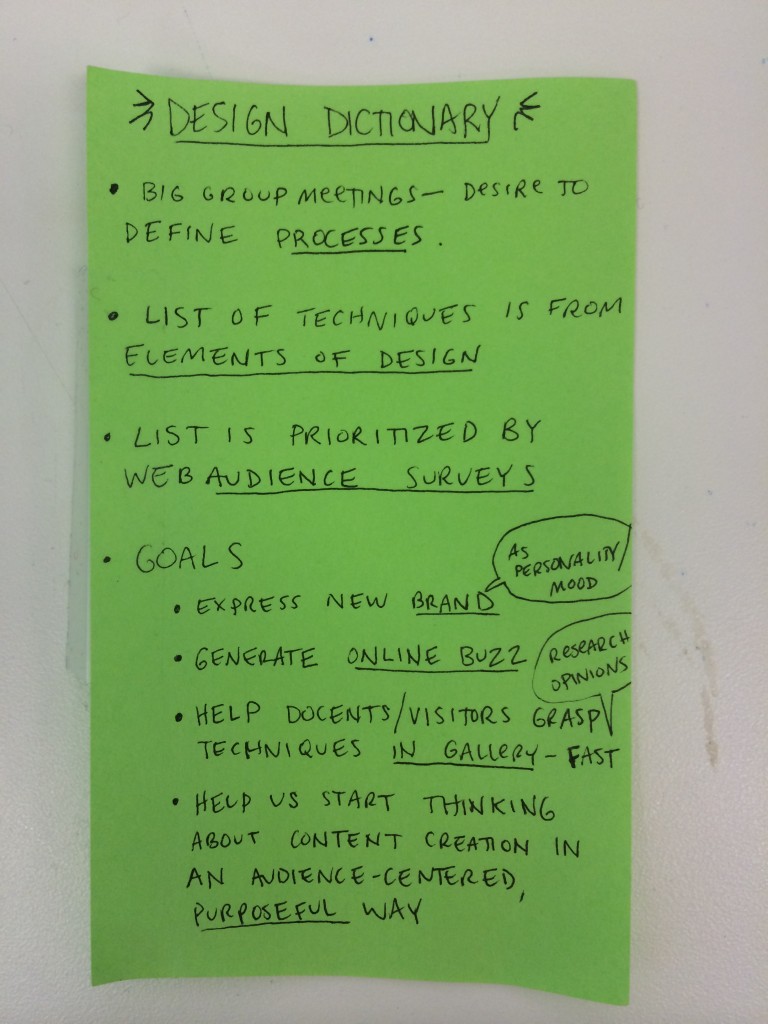 → DESIGN DICTIONARY ←
• BIG GROUP MEETINGS - DESIRE TO
DEFINE PROCESSES.
• LIST OF TECHNIQUES IS FROM
ELEMENTS OF DESIGN
• LIST IS PRIORITIZED BY
WEB AUDIENCE SURVEYS
• GOALS
• EXPRESS NEW BRAND
AS
PERSONALITY/
MOOD
• GENERATE ONLINE BUZZ
• HELP DOCENTS/VISITORS GRASP
RESEARCH
OPINIONS
TECHNIQUES IN GALLERY - FAST
• HELP US START THINKING
ABOUT CONTENT CREATION IN
AN AUDIENCE-CENTERED,
PURPOSEFUL WAY